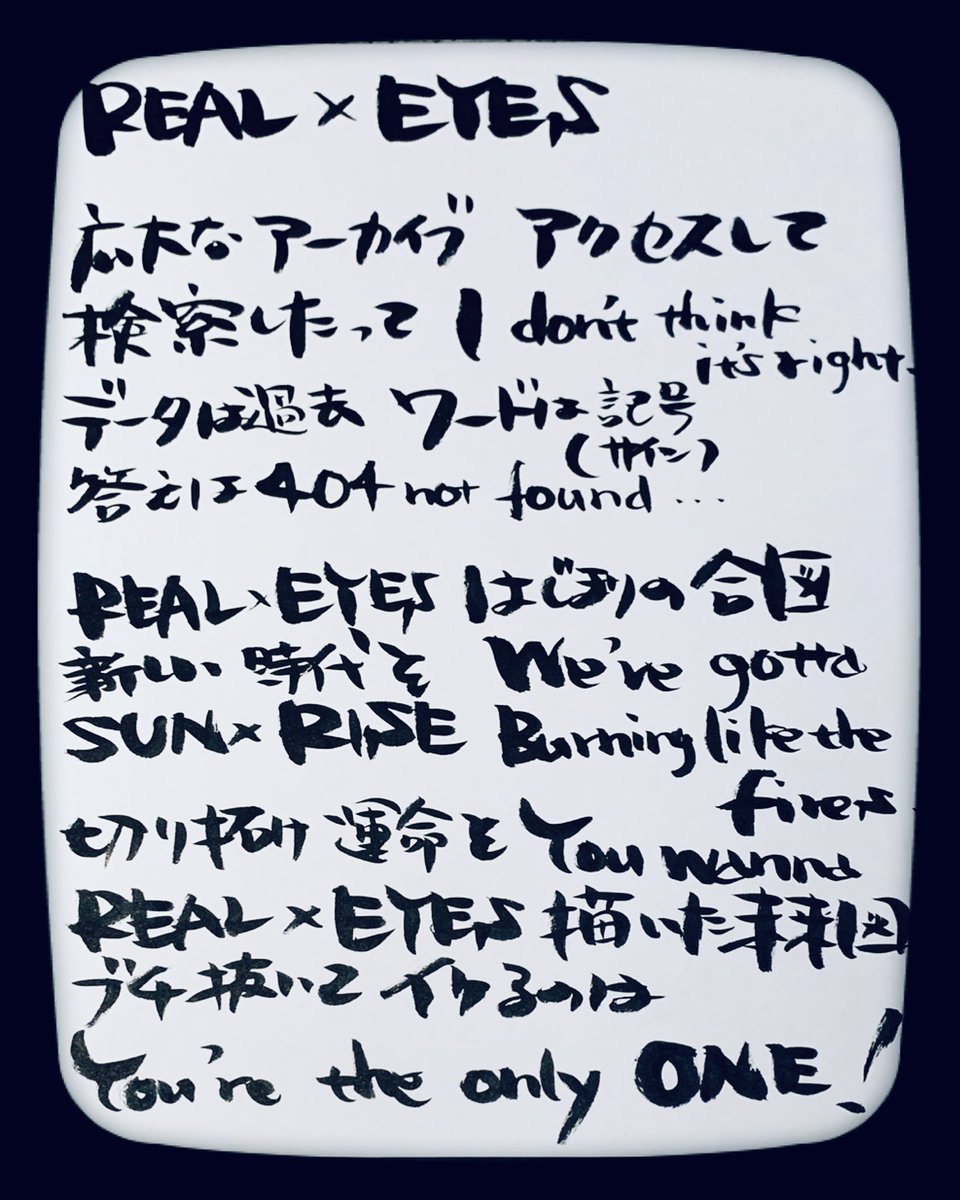 REAL×EYES
広大なアーカイブ アクセスして
検索したって I don't think
it's right.
データは過去 ワードは記号
(サイン)
答えは404 not found…
REAL×EYES はじまりの合図
新しい時代を We've gotta
SUN×RISE Burning like the
fires.
切り拓け運命を You wanna
REAL×EYES 描いた未来図
ブチ抜いてイケるのは
You're the only ONE!